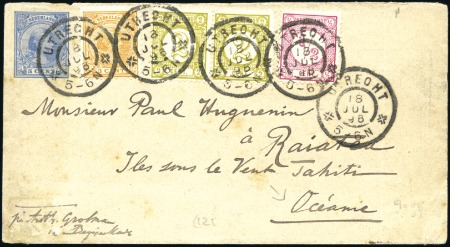 NEDERLAND
5 CENT
UTRECHT
18
JUL
98
5-6N
UTRECHT
18
JUL
98
5-6N
UTRECHT
5-6
UTRECHT
18
JUL
5-6N
UTRECHT
18
JUL
98
5-6N
Monsieur Paul Huguenin
à Raiatea
Iles sous le Vent Tahiti
Océanie
(12)